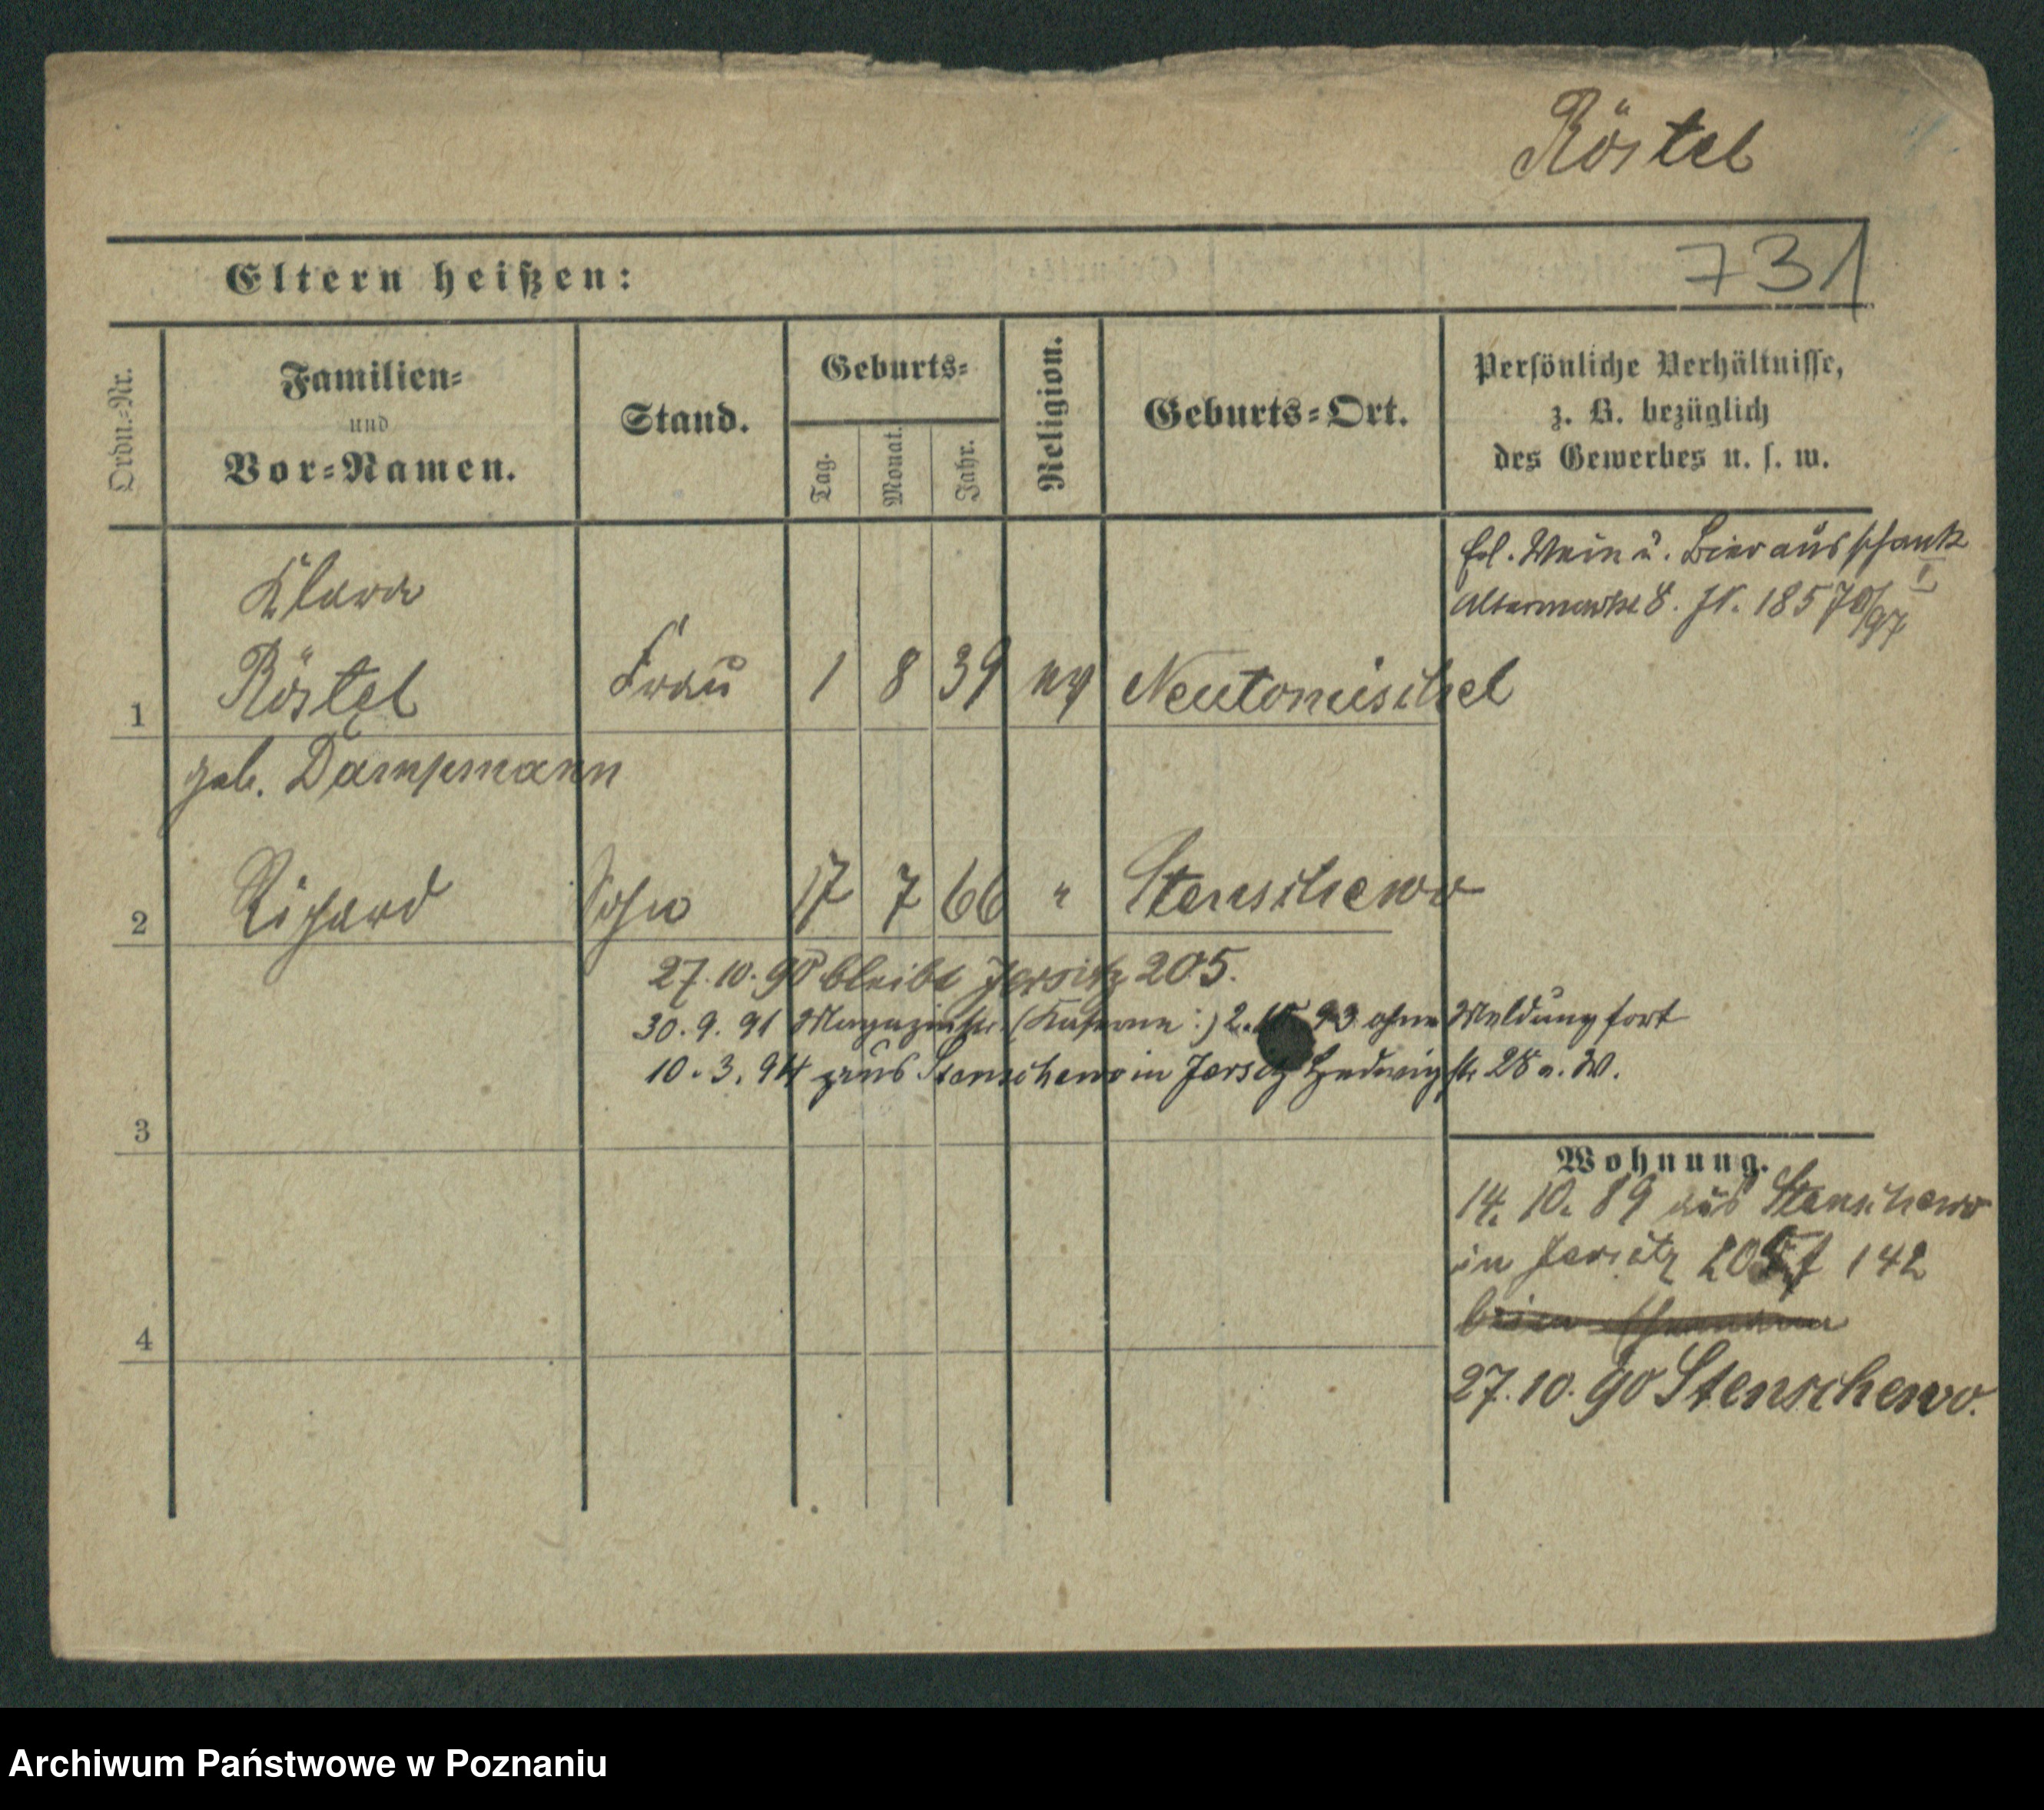 Röstel
731
Eltern heißen:
Ordn.-Nr.
Familien-
und
Vor-Namen.
Stand.
Geburts-
Tag.
Monat.
Jahr.
Religion.
Geburts-Ort.
Persönliche Verhältnisse,
z. B. bezüglich
des Gewerbes u. s. w.
Erl. Wein u. Bierausschank
Altermarkt 8. I
Klara
1 Röstel Frau 1 8 39 ev Neutomischel
geb. Dampmann
2 Richard Sohn 17 7 66 " Stenschewo
27.10.90 bleibt Jersitz 205.
30.9.91 Magazinstr. (Kaserne:) 2. 93 ohne Meldung fort
10.3.94 aus Stenschewo in Jersitz Hedwigstr 28 a. W.
3
Wohnung.
14.10.89 aus Stenschewo
in Jersitz 142
4
27.10.90 Stenschewo.
Archiwum Państwowe w Poznaniu